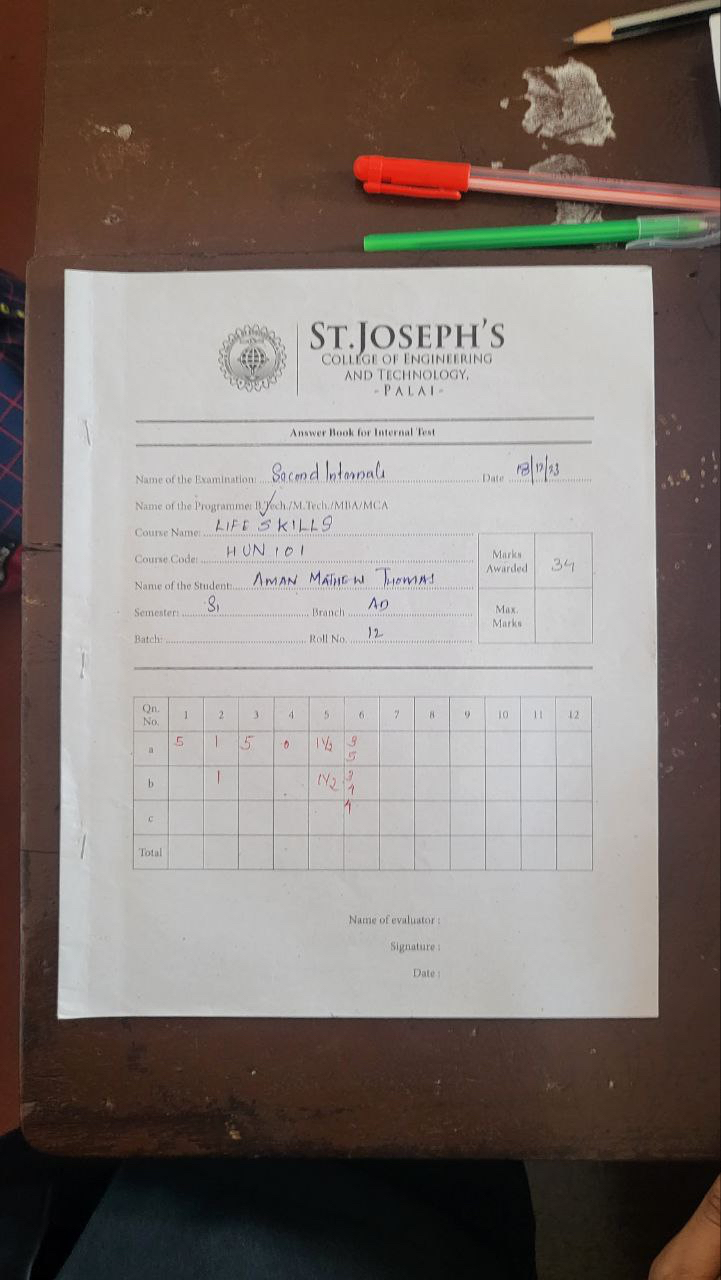 ST.JOSEPH'S
COLLEGE OF ENGINEERING
AND TECHNOLOGY,
- PALAI -
Answer Book for Internal Test
Name of the Examination: Second Internals Date 18/12/23
Name of the Programme: B.Tech./M.Tech./MBA/MCA
Course Name: LIFE SKILLS
Course Code: HUN 101
Marks Awarded 34
Name of the Student: AMAN MATHEW THOMAS
Semester: S1 Branch AD
Max. Marks
Batch: Roll No. 12
Qn. No. 1 2 3 4 5 6 7 8 9 10 11 12
a 5 1 5 0 1½ 3 5
b 1 1½ 3 4
c 4
Total
Name of evaluator :
Signature :
Date :